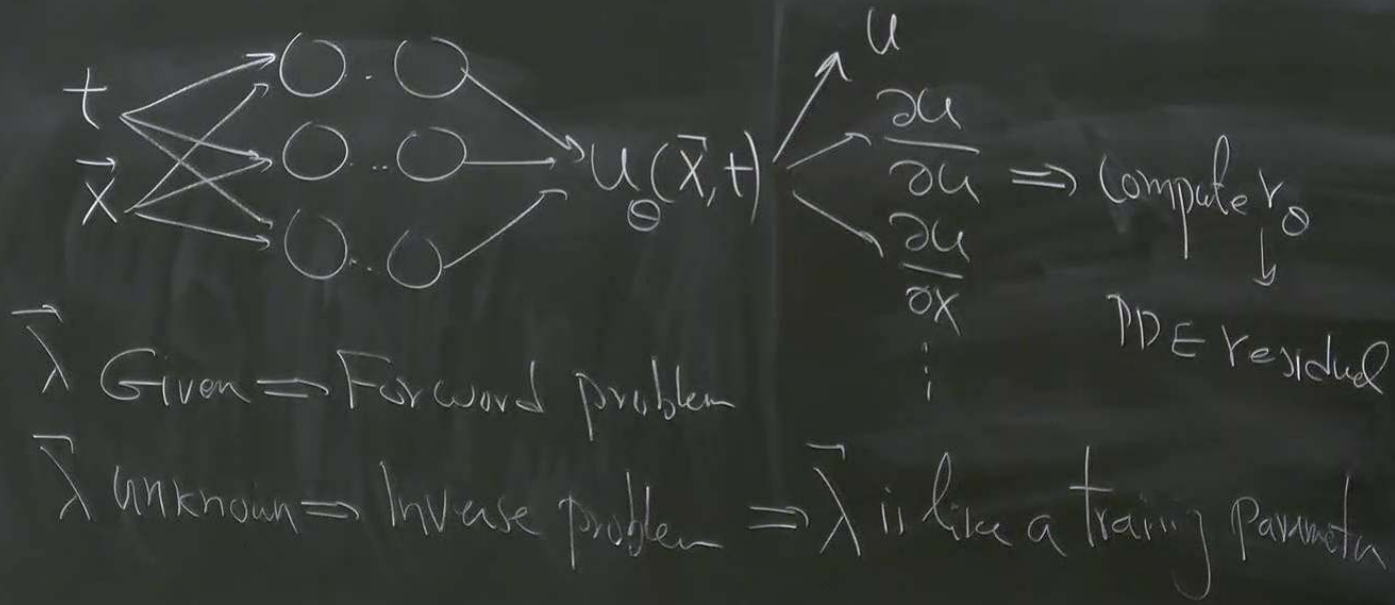 t
x⃗
u_θ(x⃗, t)
u
∂u/∂u
∂u/∂x
⋮
⇒ Compute r_θ
↓
PDE residual
λ⃗ Given ⇒ Forword problem
λ⃗ unknown ⇒ Inverse problem ⇒ λ⃗ is like a training parameter